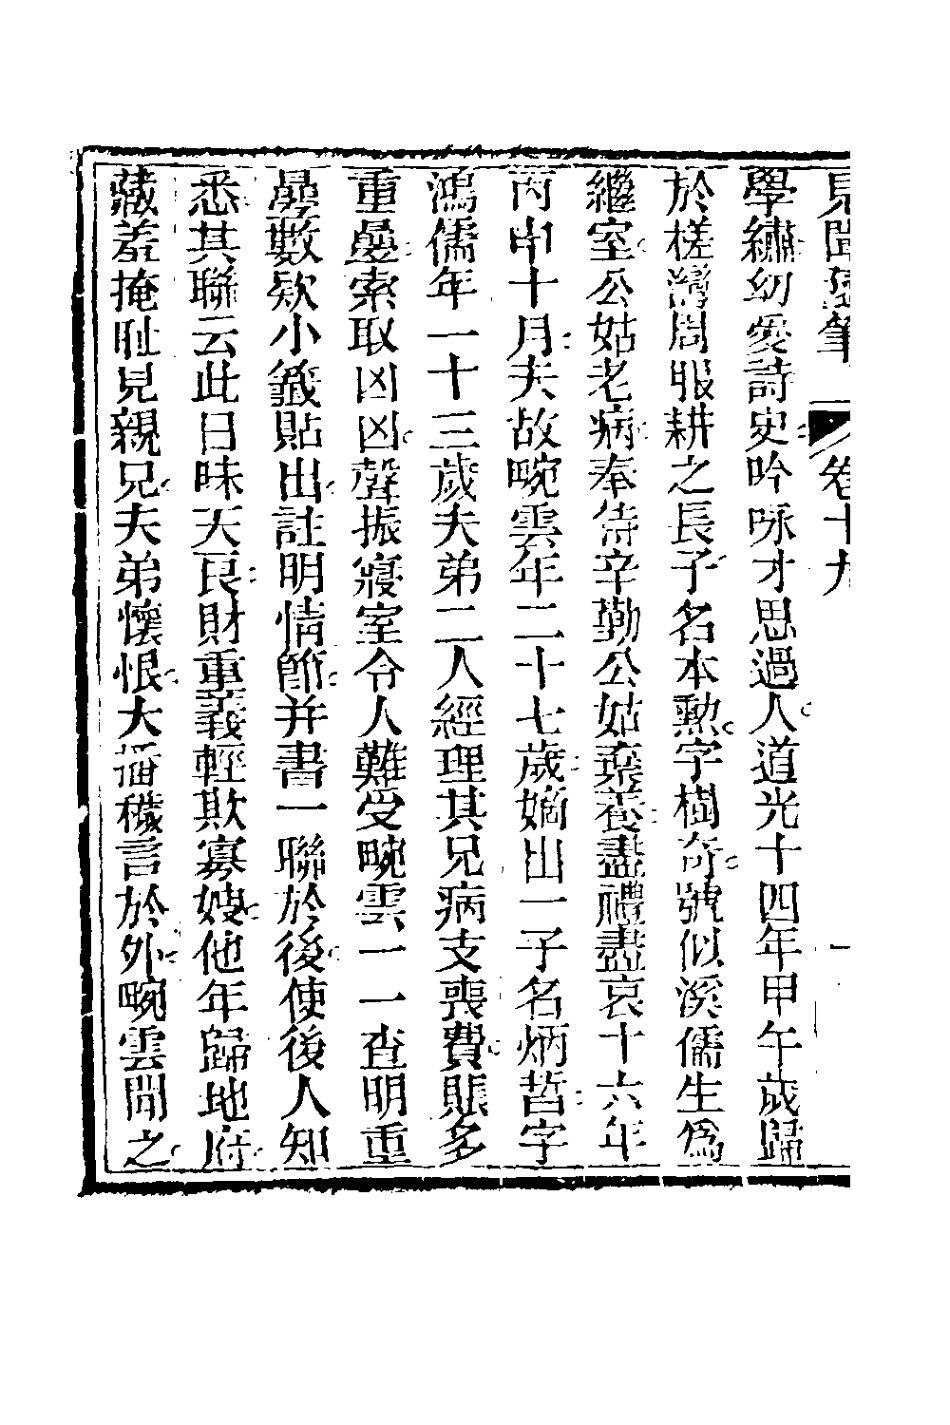 見聞瑣筆 卷十九
學繡幼愛詩史吟咏才思過人道光十四年甲午歲歸
於槎灣周服耕之長子名本勲字樹奇號似溪儒生爲
繼室公姑老病奉侍辛勤公姑棄養盡禮盡哀十六年
丙申十月夫故畹雲年二十七歲嫡出一子名炳哲字
鴻儒年一十三歲夫弟二人經理其兄病支喪費賬多
重疊索取凶凶聲振寢室令人難受畹雲一一查明重
疊數欵小籤貼出註明情節并書一聯於後使後人知
悉其聯云此日昧天良財重義輕欺寡嫂他年歸地府
藏羞掩耻見親兄夫弟懷恨大播穢言於外畹雲聞之